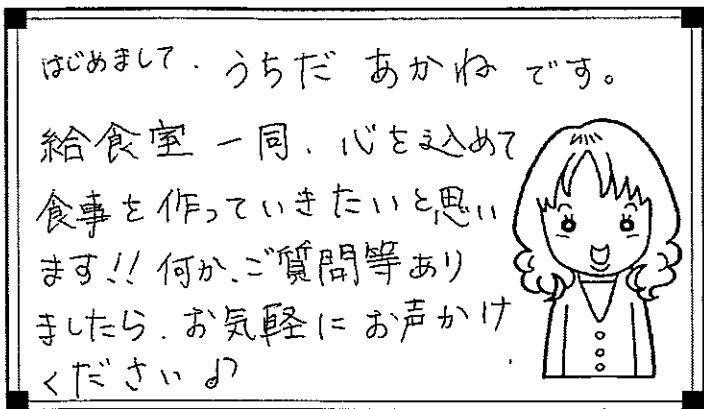 はじめまして、うちだ あかね です。
給食室一同、心を込めて
食事を作っていきたいと思い
ます!! 何か、ご質問等あり
ましたら、お気軽にお声かけ
ください♪